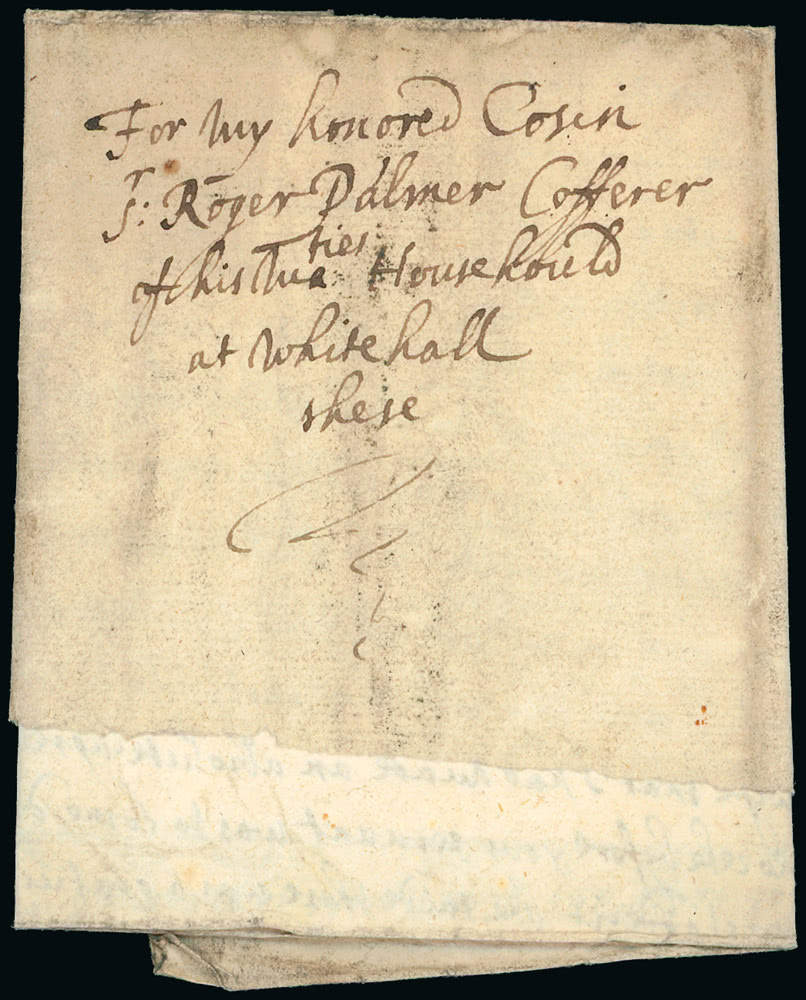 For my honored Cosin
Sr: Roger Palmer Cofferer
of his Maties Househould
at Whitehall
these